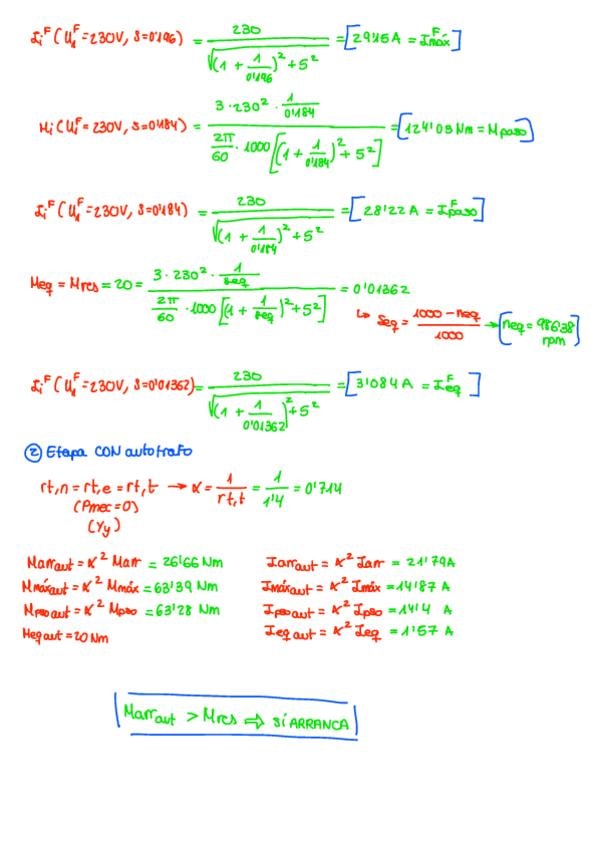 I₁ᶠ (U₁ᶠ = 230V, s=0'196) = 230 / √((1 + 1/0'196)² + 5²) = [29'15 A = Iᶠmáx]
Mi (U₁ᶠ = 230V, s=0'184) = (3·230² · 1/0'184) / (2π/60 · 1000 [(1 + 1/0'184)² + 5²]) = [124'03 Nm = Mpaso]
Iiᶠ (U₁ᶠ = 230V, s=0'184) = 230 / √((1 + 1/0'184)² + 5²) = [28'22 A = Iᶠpaso]
Meq = Mres = 20 = (3·230² · 1/seq) / (2π/60 · 1000 [(1 + 1/seq)² + 5²]) = 0'01362
↳ seq = (1000 - neq) / 1000 → [neq = 986'38 rpm]
Iiᶠ (U₁ᶠ = 230V, s=0'01362) = 230 / √((1 + 1/0'01362)² + 5²) = [3'084 A = Iᶠeq]
② Etapa CON autotrafo
rt,n = rt,e = rt,t → α = 1/rt,t = 1/1'4 = 0'714
(Pmec=0)
(Yy)
Marraut = α² Marr = 26'66 Nm
Mmáxaut = α² Mmáx = 63'39 Nm
Mpsoaut = α² Mpso = 63'28 Nm
Meqaut = 20 Nm
Iarraut = α² Iarr = 21'79A
Imáxaut = α² Imáx = 14'87 A
Ipsoaut = α² Ipso = 14'4 A
Ieqaut = α² Ieq = 1'57 A
Marraut > Mres ⇒ SÍ ARRANCA